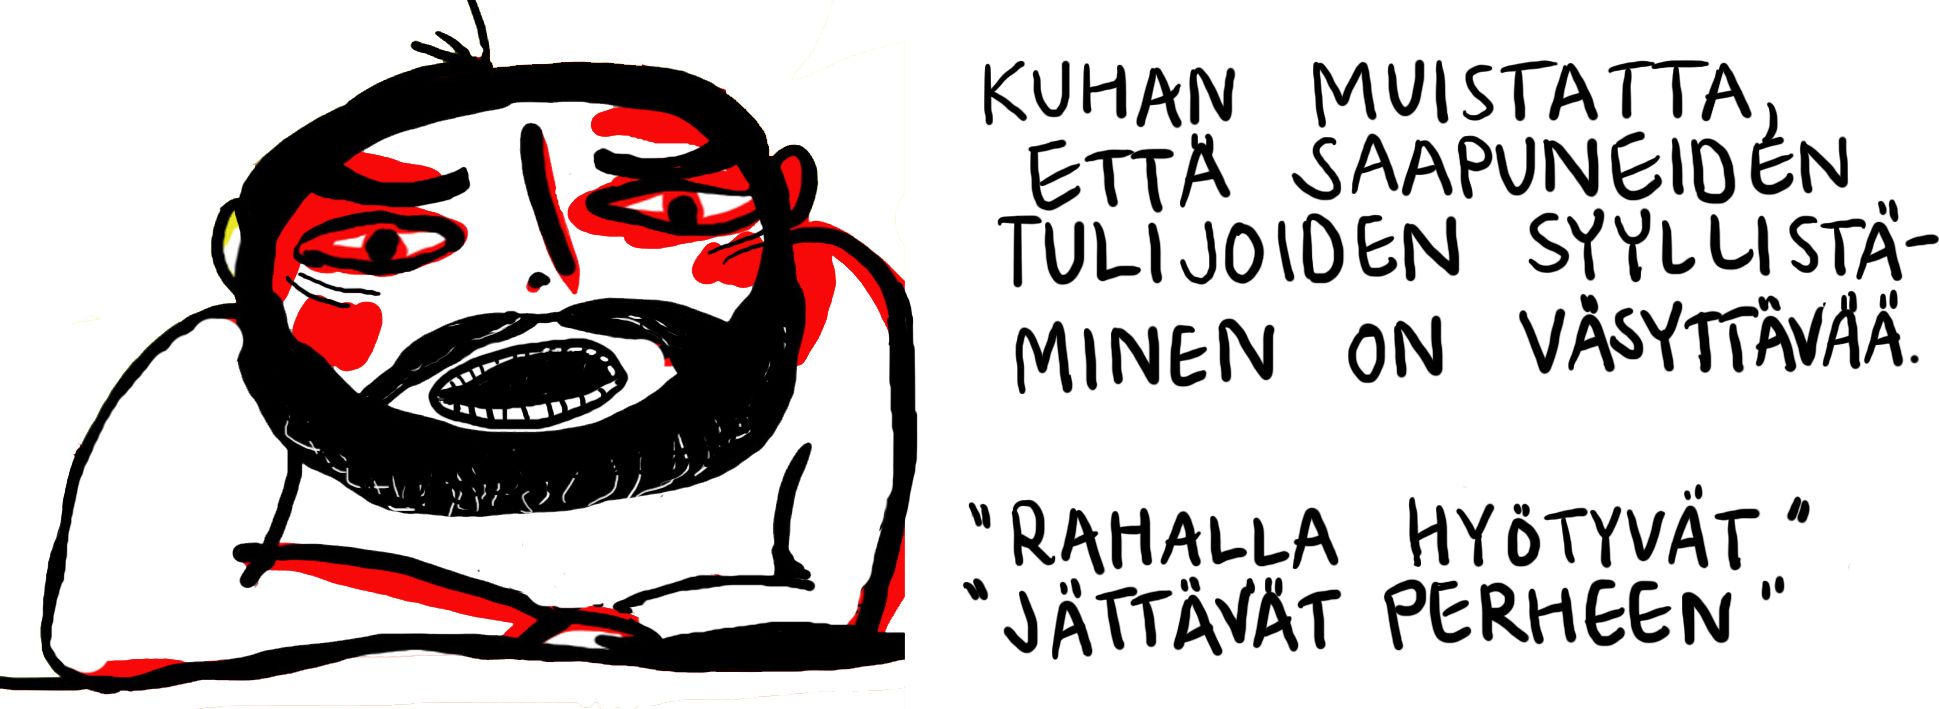 KUHAN MUISTATTA,
ETTÄ SAAPUNEIDEN
TULIJOIDEN SYYLLISTÄ-
MINEN ON VÄSYTTÄVÄÄ.
"RAHALLA HYÖTYVÄT"
"JÄTTÄVÄT PERHEEN"